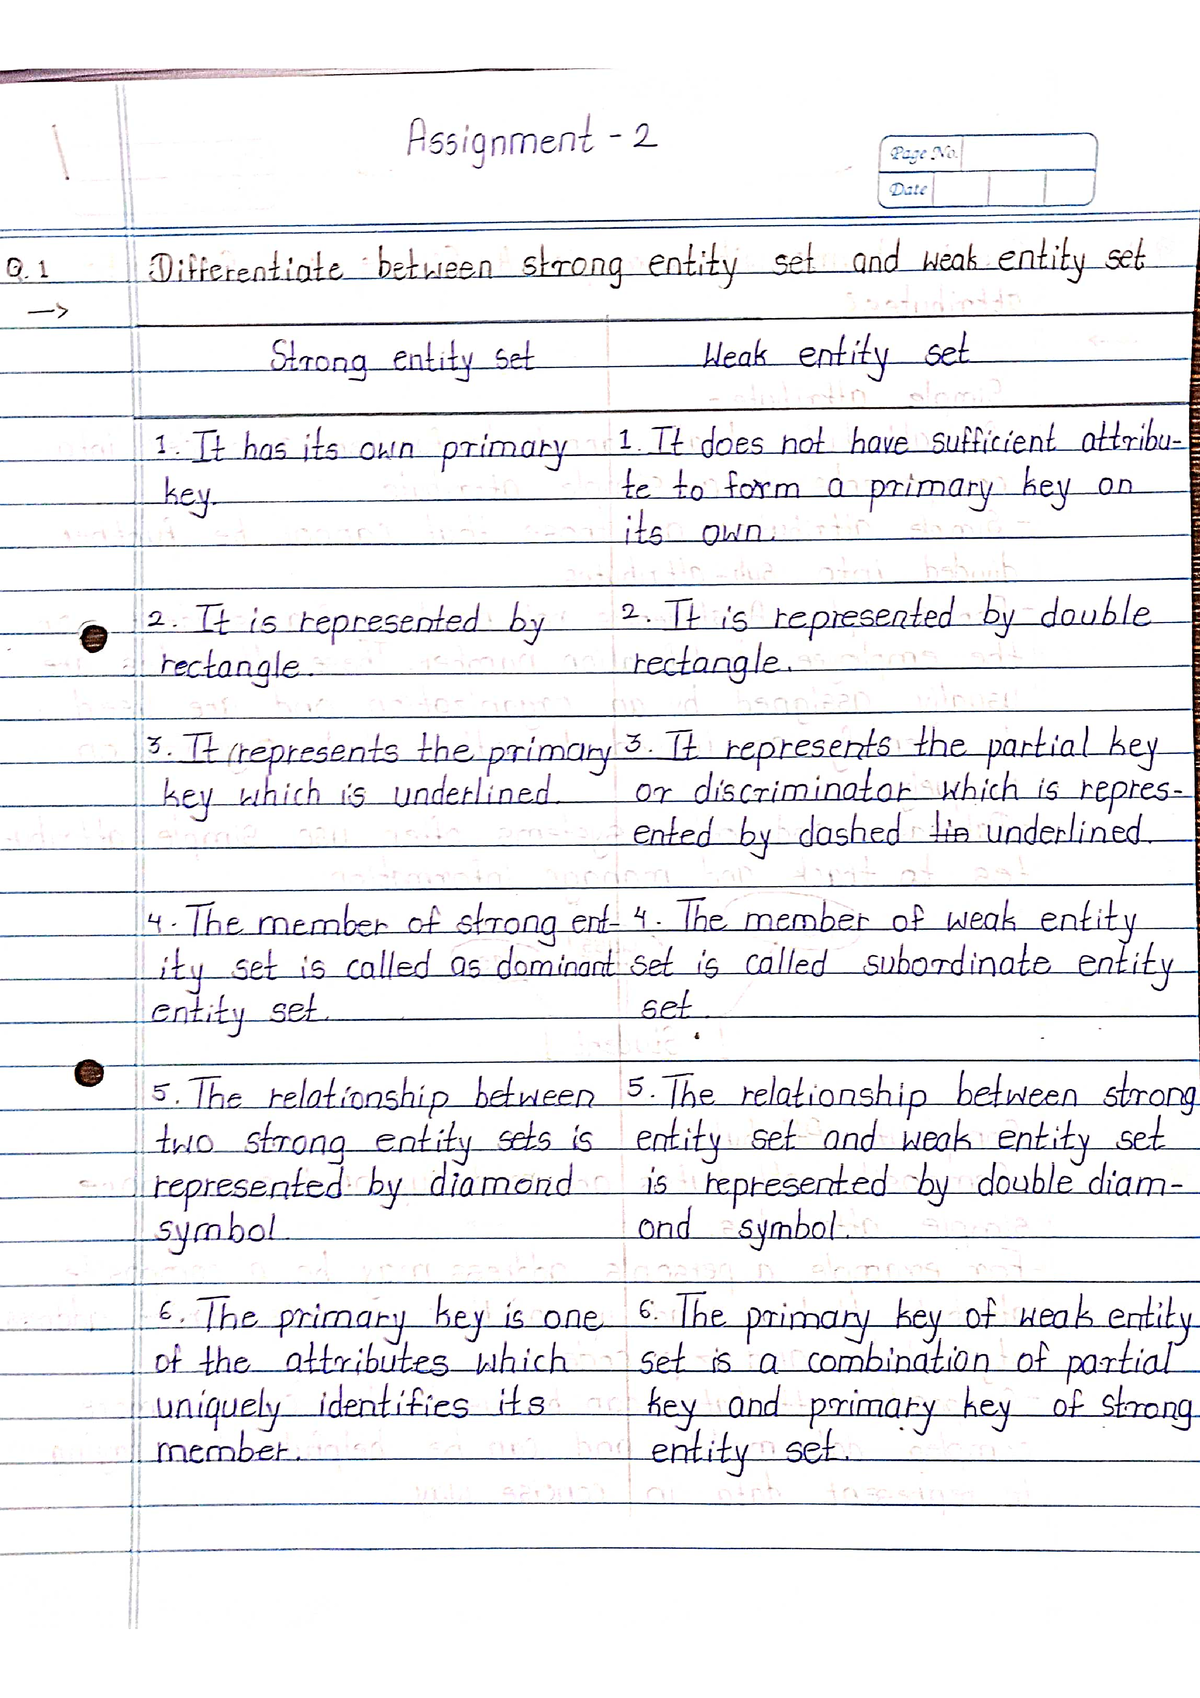 Assignment - 2
Page No.
Date
Q. 1 Differentiate between strong entity set and weak entity set
→
Strong entity set
Weak entity set
1. It has its own primary
key.
1. It does not have sufficient attribu-
te to form a primary key on
its own.
2. It is represented by
rectangle.
2. It is represented by double
rectangle.
3. It represents the primary
key which is underlined.
3. It represents the partial key
or discriminator which is repres-
ented by dashed lin underlined.
4. The member of strong ent-
ity set is called as dominant
entity set.
4. The member of weak entity
set is called subordinate entity
set.
5. The relationship between
two strong entity sets is
represented by diamond
symbol.
5. The relationship between strong
entity set and weak entity set
is represented by double diam-
ond symbol.
6. The primary key is one
of the attributes which
uniquely identifies its
member.
6. The primary key of weak entity
set is a combination of partial
key and primary key of strong
entity set.